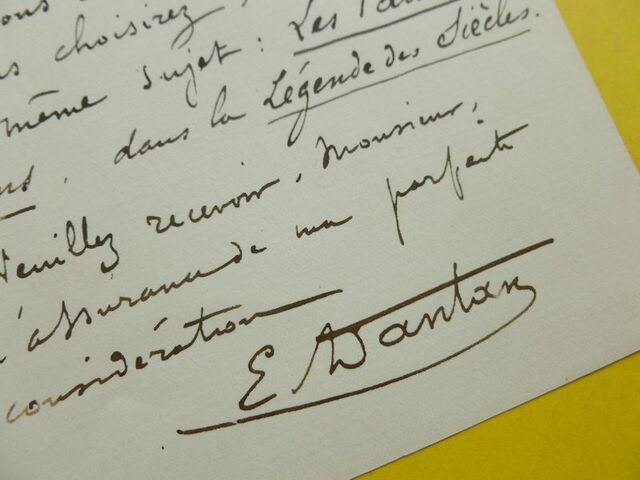 choisirez,
même sujet : Les
dans la Légende des Siècles.
Veuillez recevoir, Monsieur,
l'assurance de ma parfaite
considération
E Dantan